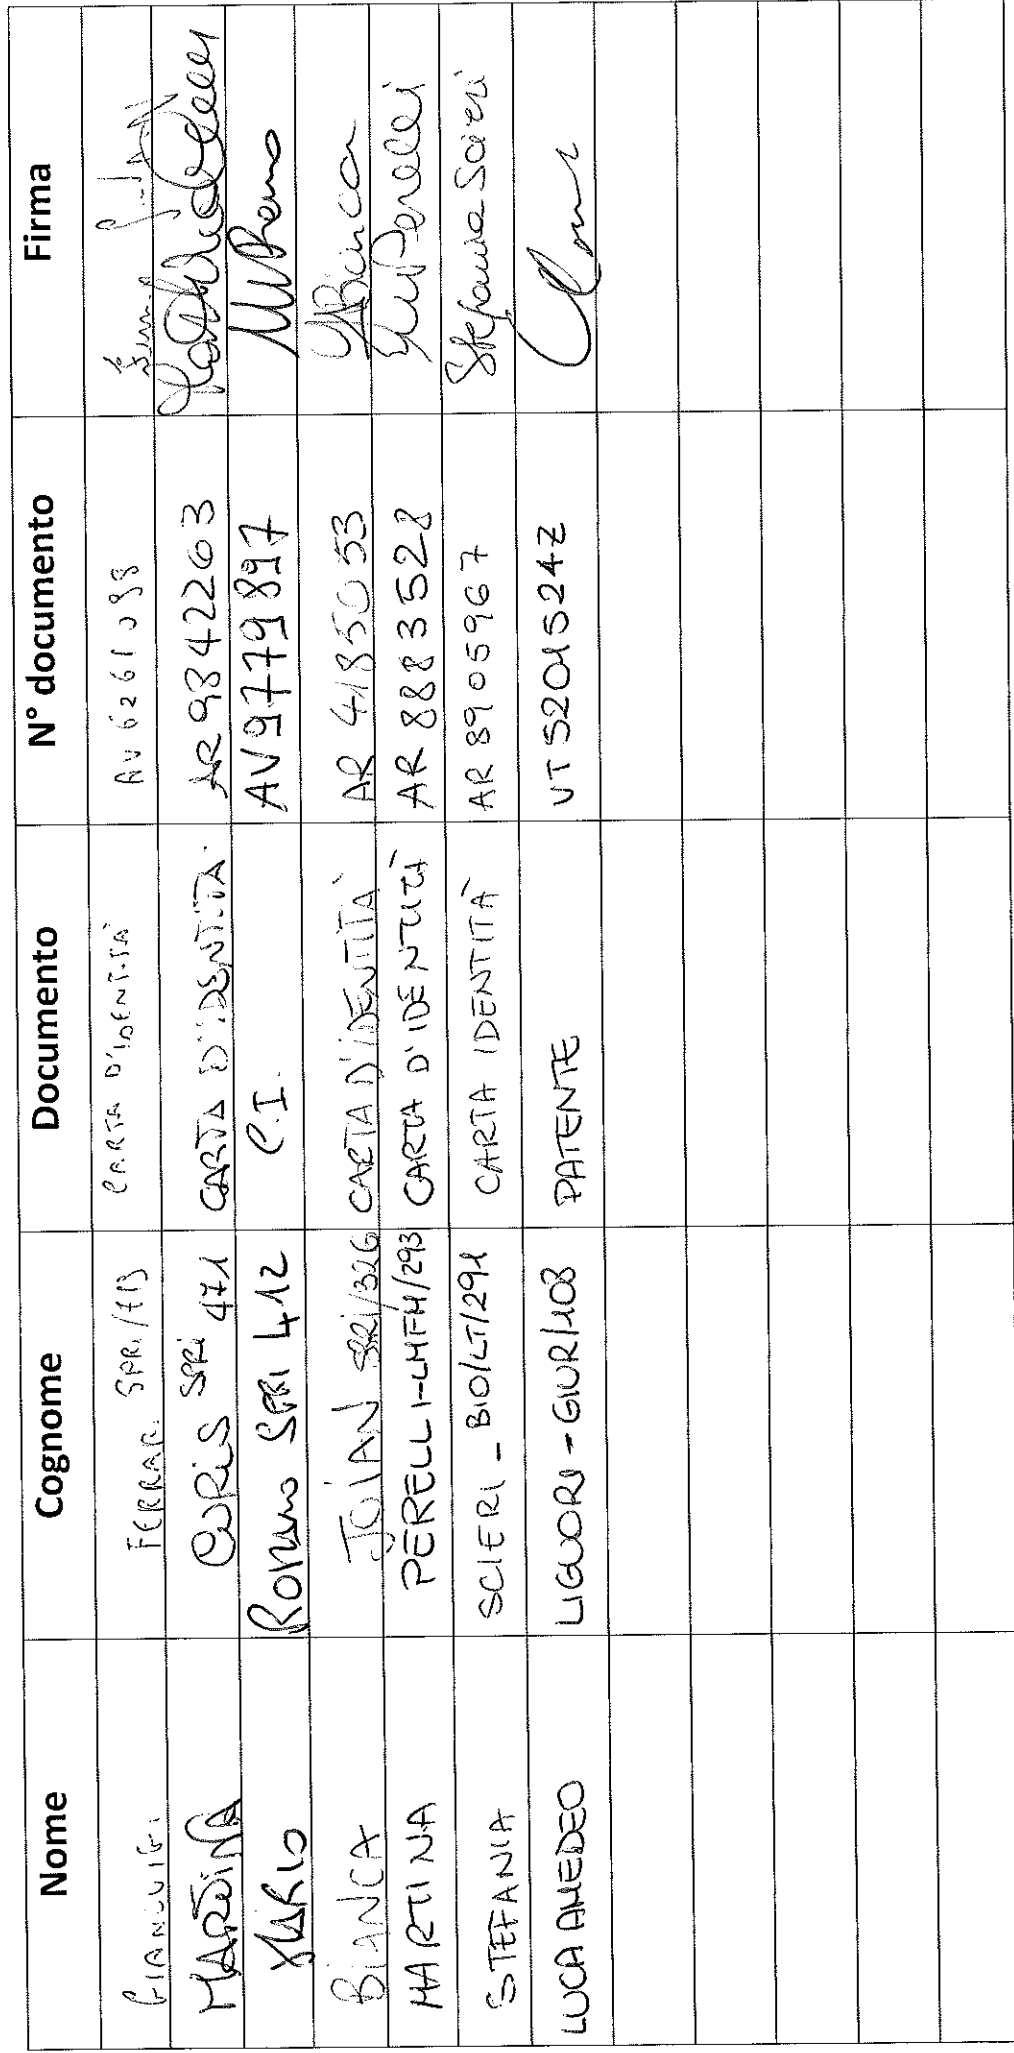 Nome Cognome Documento N° documento Firma
GIANLUIGI FERRARI SPRI/713 CARTA D'IDENTITÀ AV 6261093
MARTINA CURIS SPRI 471 CARTA D'IDENTITÀ AR 9842263
MARIO ROMANO SPRI 412 C.I. AV9779897
BIANCA JOIAN SPRI/326 CARTA D'IDENTITÀ AR 4185053 JBianca
MARTINA PERELLI-LMFM/293 CARTA D'IDENTITÀ AR 8883528 Perelli
STEFANIA SCIERI - BIO/LT/291 CARTA IDENTITÀ AR 8905967 Stefania Scieri
LUCA AMEDEO LIGUORI - GIUR/108 PATENTE VT5201524Z